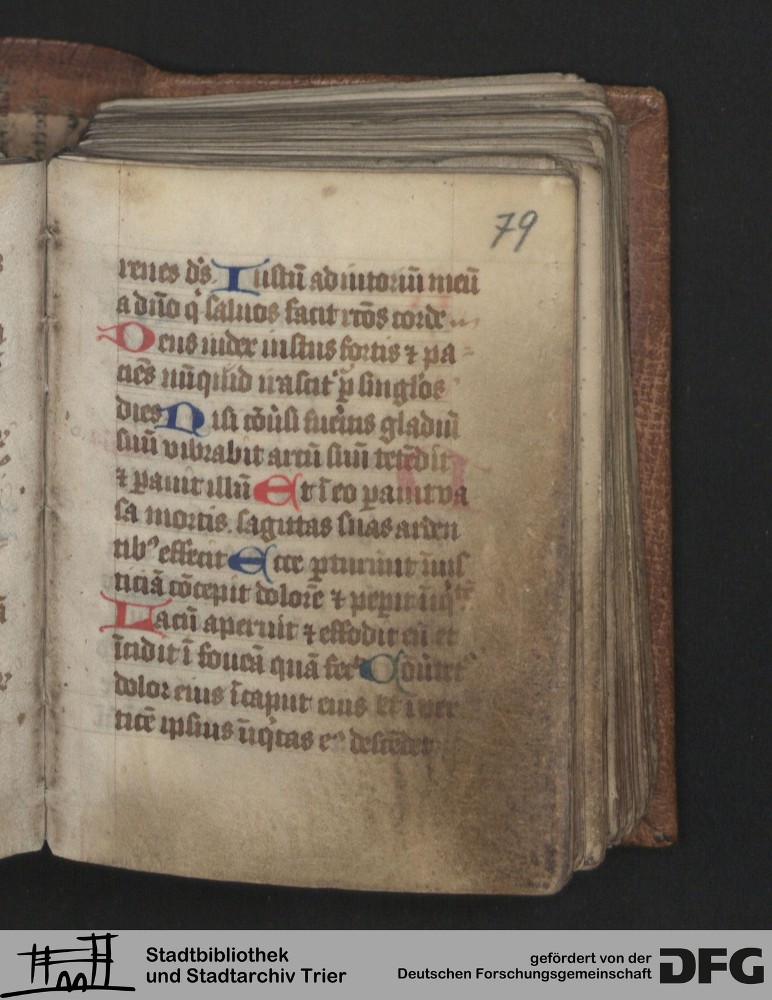 79
renes ds Iustū adiutoriū meū
a dn̄o q saluos facit rc̄os corde
Deus iudex iustus fortis ⁊ pa
ciēs nūquid irascit᷑ ꝑ singlos
dies Nisi cōuͥsi fuerͥtis gladiū
suū vibrabit arcū suū tetēdit
⁊ parauit illū Et ī eo parauit va
sa mortis. sagittas suas arden
tibꝰ effecit Ecce ꝑturiuit īius
ticiā cōcepit dolorē ⁊ peperit
Lacū aperuit ⁊ effodit eū et
īcidit ī foueā quā fecͥ Cōuertet᷑
dolor eius ī caput eius et ī ver
ticē ipsius īiqͥtas eiꝰ descēdet
Stadtbibliothek
und Stadtarchiv Trier
gefördert von der
Deutschen Forschungsgemeinschaft DFG